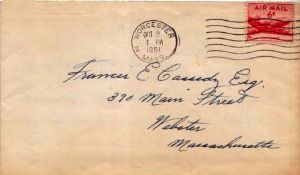 WORCESTER
2
OCT 2
1 PM
1951
MASS.
AIR MAIL
6¢
Francis E Cassidy Esq.
390 Main Street
Webster
Massachusetts